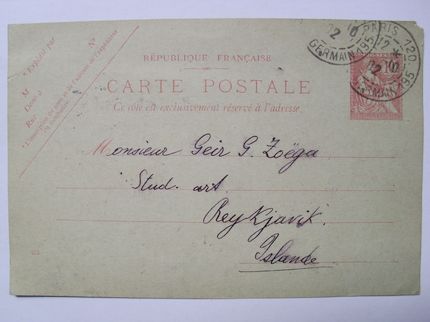 N°
Expédié par
M
Demt à
Rue
RÉPUBLIQUE FRANÇAISE
CARTE POSTALE
Ce côté est exclusivement réservé à l'adresse.
PARIS 120
GERMAIN
Monsieur Geir G. Zoëga
Stud. art.
Reykjavik.
Islande